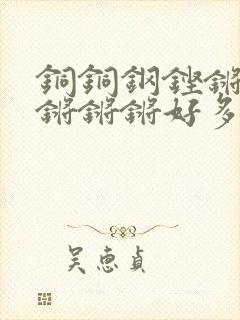 銅銅鋼鏗鏘
鏘鏘鏘好多
吴惠貞